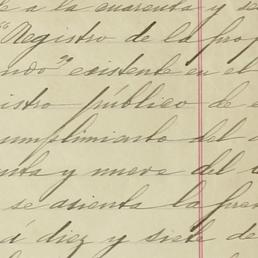 a la cuarenta y se
"Registro de la prop
existente en el
istro público de e
umplimiento del a
nta y nueve del c
se asienta la pres
diez y siete de